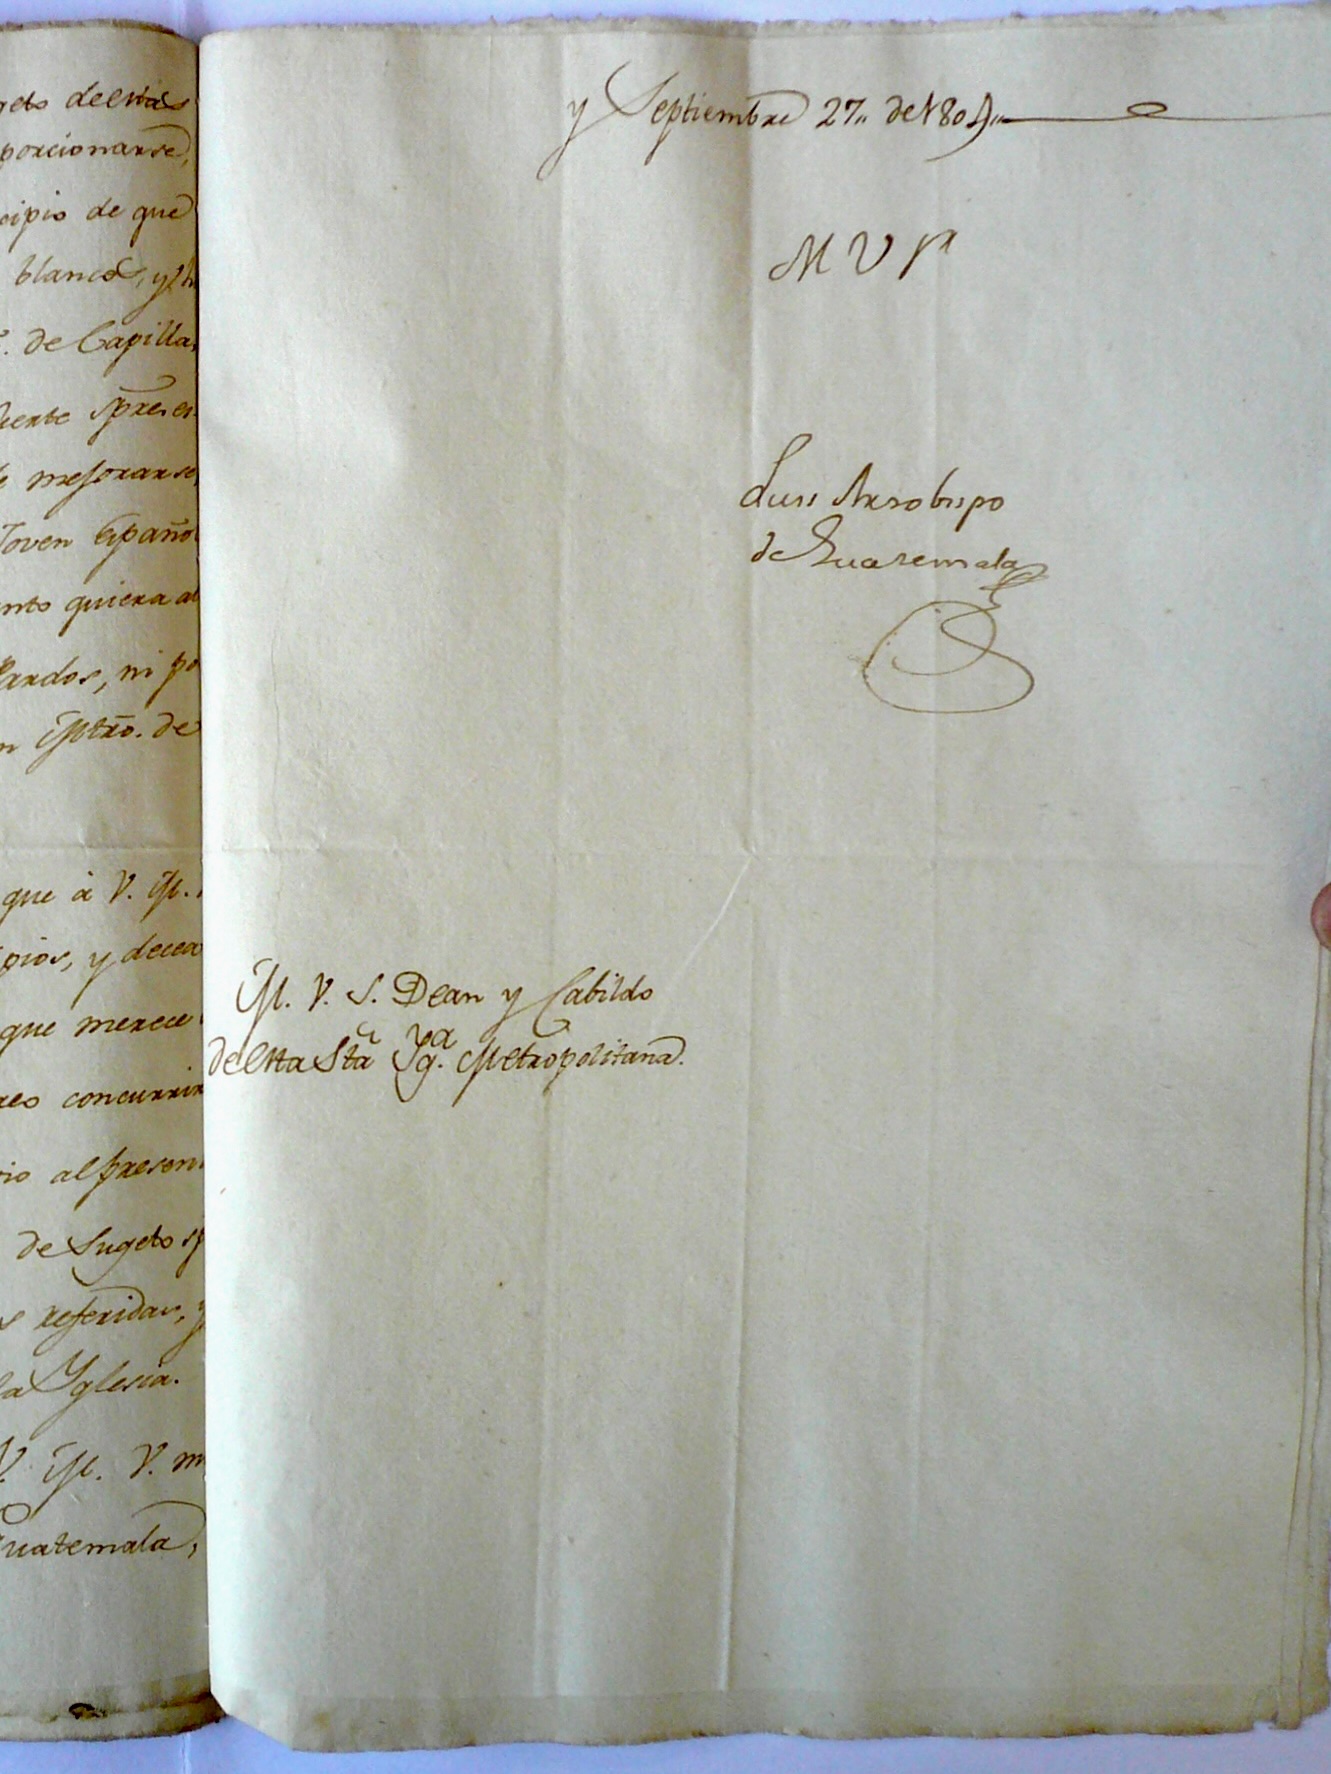 geto de estas
porcionarse,
cipio de que
blancos, y
. de Capilla,
mejorarse,
Joven Español
nto quiera al
Pardos, ni po
n Mtrô. de
que à V. M.
pios, y decea
que merece
reo concurrir
rio al presen
de Sugeto
s referidas, y
la Yglesia.
V. M. V. m
uatemala,
y Septiembre 27,, de 1804,,
M V Sr
Luis Arzobispo
de Guatemala
M. V. S. Dean y Cabildo
de esta Sta Yga. Metropolitana.